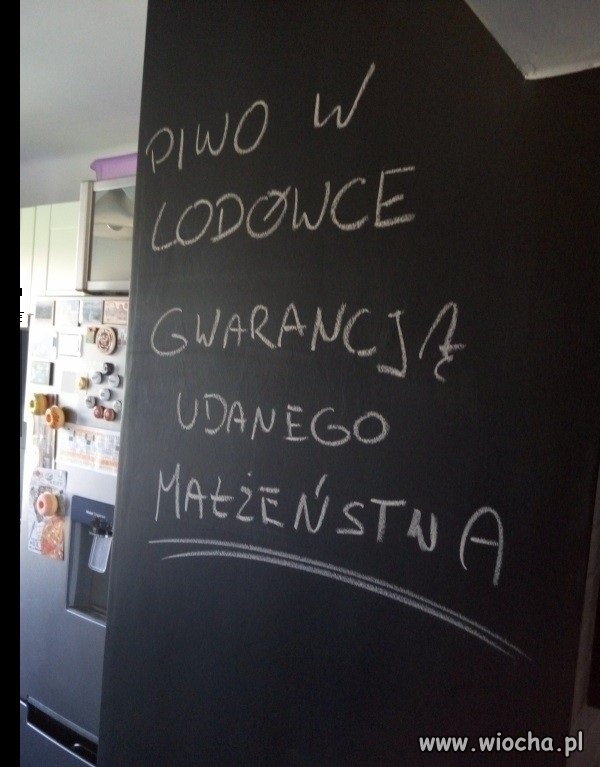 PIWO W
LODÓWCE
GWARANCJĄ
UDANEGO
MAŁŻEŃSTWA
www.wiocha.pl